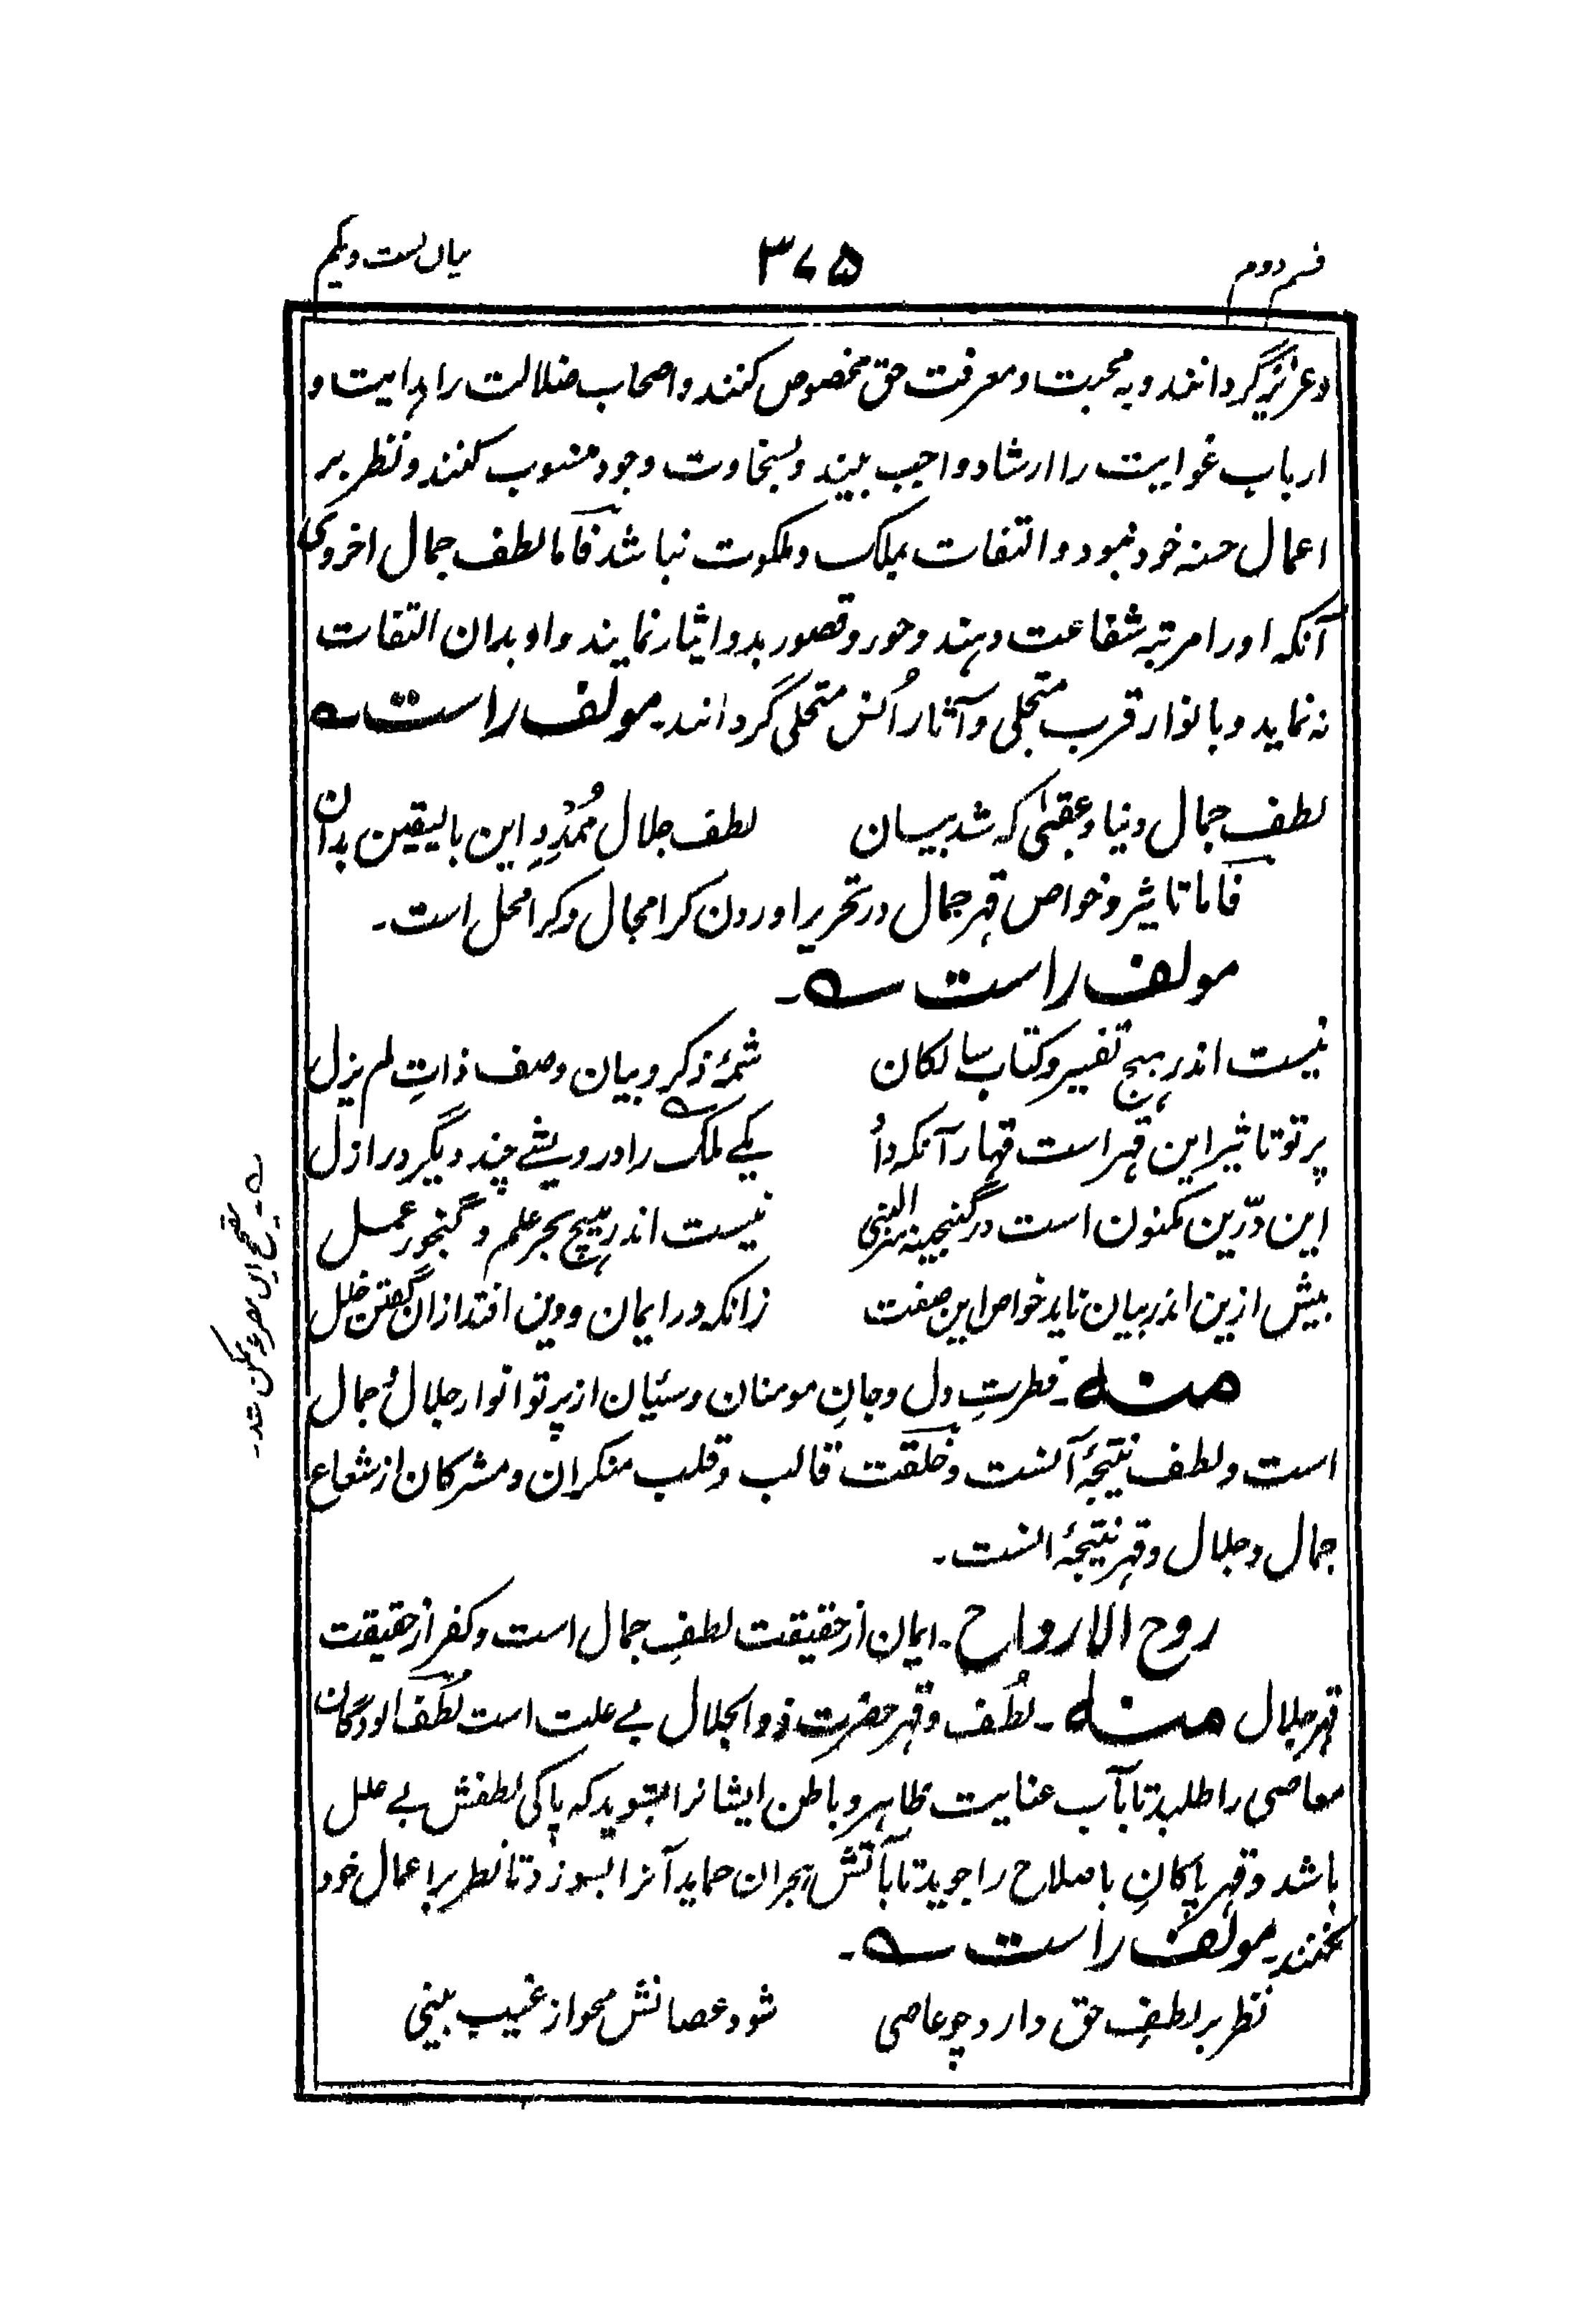 قسم دوم ۳۷۵ بیان بست ویکم
دعزیز گردانند وبه محبت ومعرفت حق مخصوص کنند واصحاب ضلالت را ہدایت و
ارباب غوایت را ارشاد واجب بیند وبسخاوت وجود منسوب کنند ونظر بر
اعمال حسنہ خود نبود والتفات بملک وملکوت نباشد فاما لطف جمال اخروی
آنکہ اورا مرتبہ شفاعت دہند وحور وقصور بدو ایثار نمایند واو بدان التفات
نہ نماید وبانوار قرب متجلی وآثار اُنس متحلی گردانند۔ مولف راست ؎
لطف جمال دنیا وعقبیٰ کہ شد بیان لطف جلال مُمِدِّ این بالیقین بدان
فاما تاثیر وخواص قہر جمال در تحریر اوردن کرا مجال وکرا محل است۔
مولف راست ؎۔
نیست اندر ہیچ تفسیر وکتاب سالکان شمۂ ذکر وبیان وصف ذاتِ لم یزل
پرتو تاثیر این قہر است قہار آنکہ داُ یکے ملک را درویشے چند دیگر در ازل
این دُرّین مکنون است در گنجینہ نیست اندر ہیچ بحر علم وگنجور عمل
بیش ازین اندر بیان ناید خواص این صفت زانکہ در ایمان ودین افتد ازان گفتن خلل
منہ۔ فطرتِ دل وجانِ مومنان وسنیان از پرتو انوار جلال وجمال
است ولطف نتیجۂ آنست وخلقت قالب وقلب منکران ومشرکان از شعاع
جمال وجلال وقہر نتیجۂ انست۔
روح الارواح۔ ایمان از حقیقت لطفِ جمال است وکفر از حقیقت
قہر جلال منہ۔ لُطف وقہر حضرت ذوالجلال بے علت است لطف الودگان
معاصی را طلبد تا بآب عنایت ظاہر وباطن ایشانرا بشوید کہ پاکی لطفش بے علل
باشد وقہر پاکانِ باصلاح را جوید تا بآتش ہجران آنرا بسوزد تا نظر بر اعمال خود
نکنند۔ مولف راست ؎۔
نظر بر لطفِ حق دارد چو عاصی شود عصانش محو از غیب بینی
؎۔ تصحیح این مصرعہ ممکن نشد۔